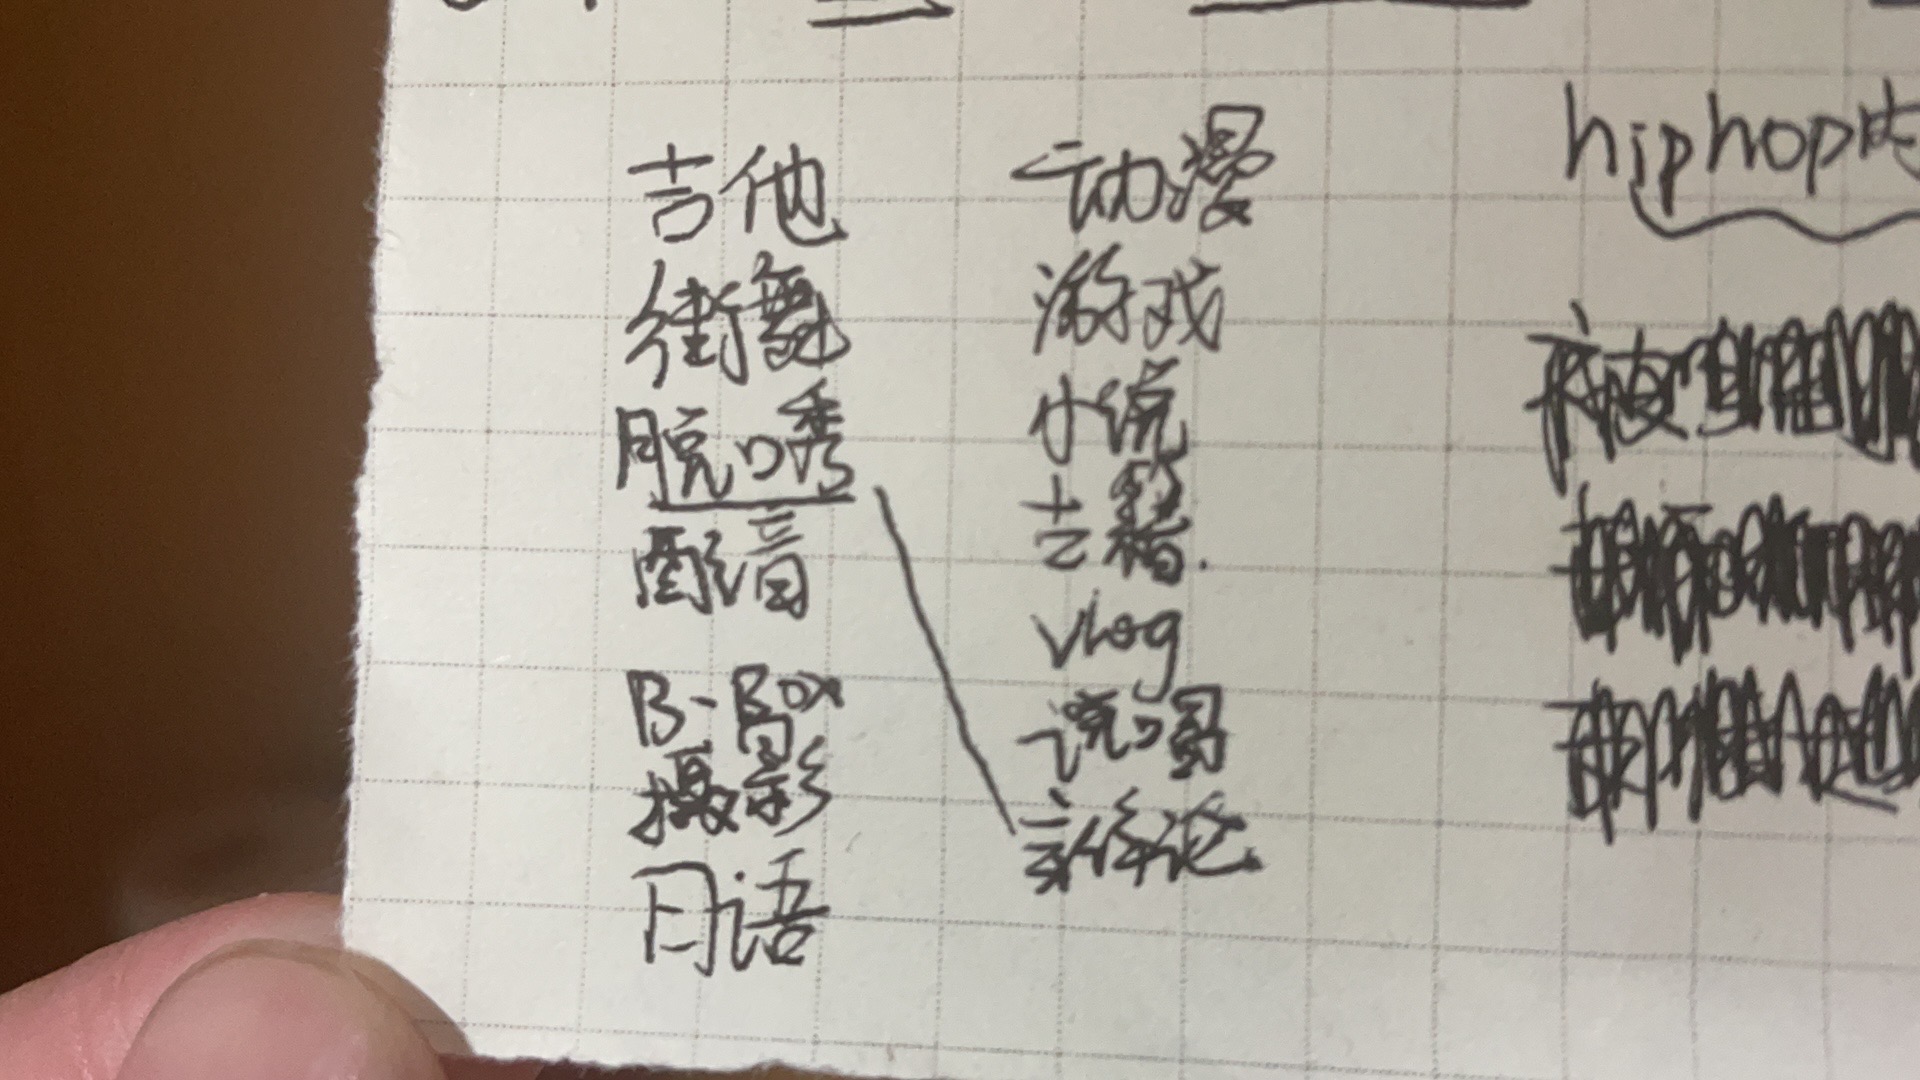 吉他
街舞
脱口秀
配音
B-Box
摄影
日语
动漫
游戏
小说
古籍.
vlog
说唱
hiphop